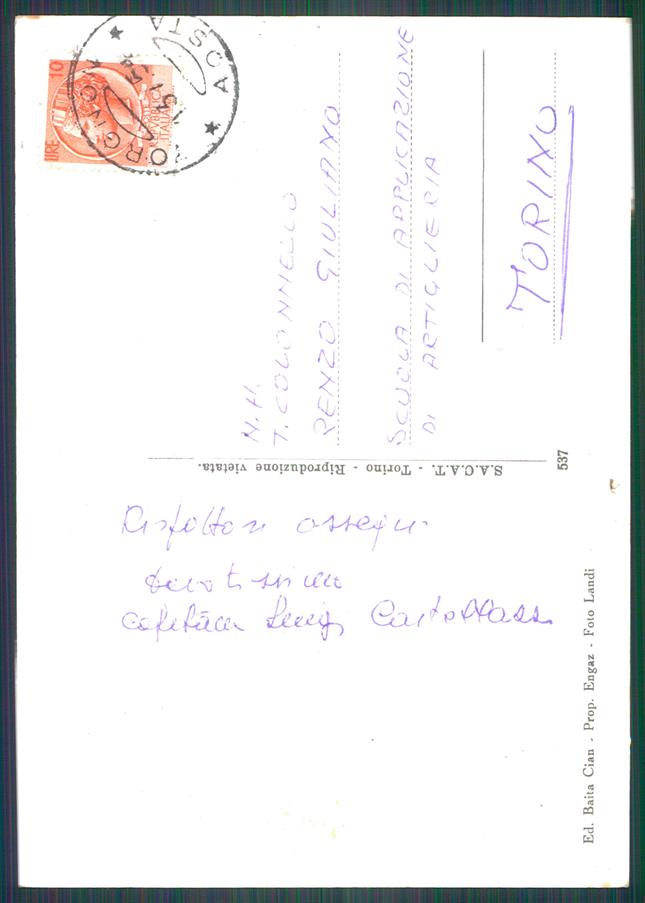 Rispettosi ossequi
devotissimo
Luigi
N.H.
T. COLONNELLO
RENZO GIULIANO
SCUOLA DI APPLICAZIONE
DI ARTIGLIERIA
TORINO
S.A.C.A.T. - Torino - Riproduzione vietata.
537
Ed. Baita Cian - Prop. Engaz - Foto Landi
TORGNON
AOSTA
LIRE 10
REPVBBLICA
ITALIANA